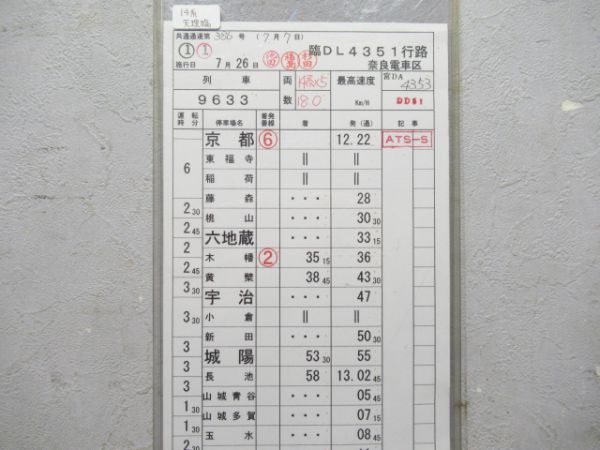 14系
天理臨
共通通達第 386 号 (7月7日)
臨DL4351行路
① ①
奈良電車区
施行日 7月26日
列車 両数 14系×5 18.0 最高速度 Km/H 宮DA 4353
9633 DD51
運転時分 停車場名 着発番線 着 発(通) 記事
京都 ⑥ 12.22 ATS-S
東福寺 || ||
6 稲荷 || ||
藤森 ・・・ 28
2 30 桃山 ・・・ 30 30
2 45 六地蔵 ・・・ 33 15
2 木幡 ② 35 15 36
2 45 黄檗 38 45 43 30
3 30 宇治 ・・・ 47
小倉 || ||
3 30 新田 ・・・ 50 30
3 城陽 53 30 55
3 長池 58 13.02 45
3 山城青谷 ・・・ 05 45
1 30 山城多賀 ・・・ 07 15
1 30 玉水 ・・・ 08 45
2 30